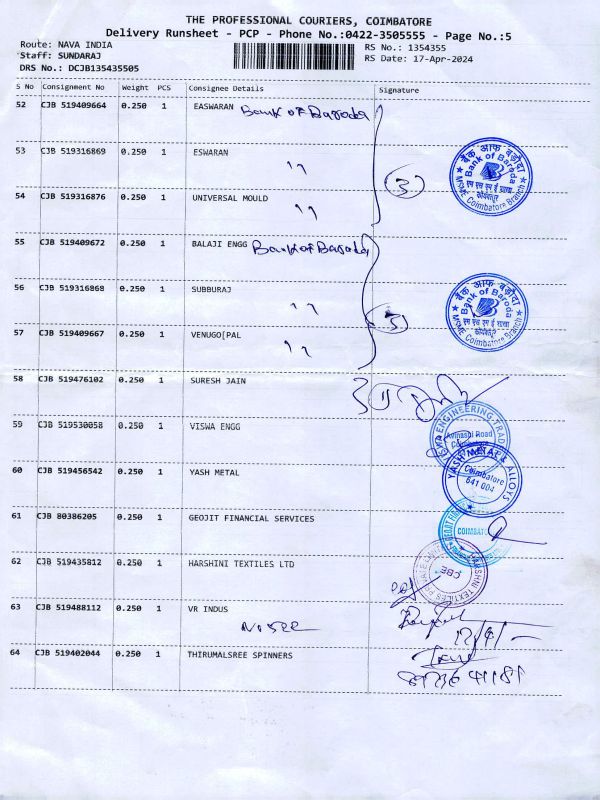 THE PROFESSIONAL COURIERS, COIMBATORE
Delivery Runsheet - PCP - Phone No.:0422-3505555 - Page No.:5
Route: NAVA INDIA
Staff: SUNDARAJ
DRS No.: DCJB135435505
RS No.: 1354355
RS Date: 17-Apr-2024
S No Consignment No Weight PCS Consignee Details Signature
52 CJB 519409664 0.250 1 EASWARAN Bank of Baroda
53 CJB 519316869 0.250 1 ESWARAN
וי
54 CJB 519316876 0.250 1 UNIVERSAL MOULD
3
बैंक ऑफ बड़ौदा
Bank of Baroda
एम एस एम ई शाखा
कोयंबतूर
MSME Coimbatore Branch
55 CJB 519409672 0.250 1 BALAJI ENGG Bank of Baroda
56 CJB 519316868 0.250 1 SUBBURAJ
57 CJB 519409667 0.250 1 VENUGO[PAL
बैंक ऑफ बड़ौदा
Bank of Baroda
एम एस एम ई शाखा
कोयंबतूर
MSME Coimbatore Branch
58 CJB 519476102 0.250 1 SURESH JAIN
59 CJB 519530058 0.250 1 VISWA ENGG
VISWA ENGINEERING TRAD
Avinasi Road
60 CJB 519456542 0.250 1 YASH METAL
YASH METAL & ALLOYS
Coimbatore
641 004
61 CJB 80386205 0.250 1 GEOJIT FINANCIAL SERVICES
COIMBATO
62 CJB 519435812 0.250 1 HARSHINI TEXTILES LTD
CBE
63 CJB 519488112 0.250 1 VR INDUS
64 CJB 519402044 0.250 1 THIRUMALSREE SPINNERS